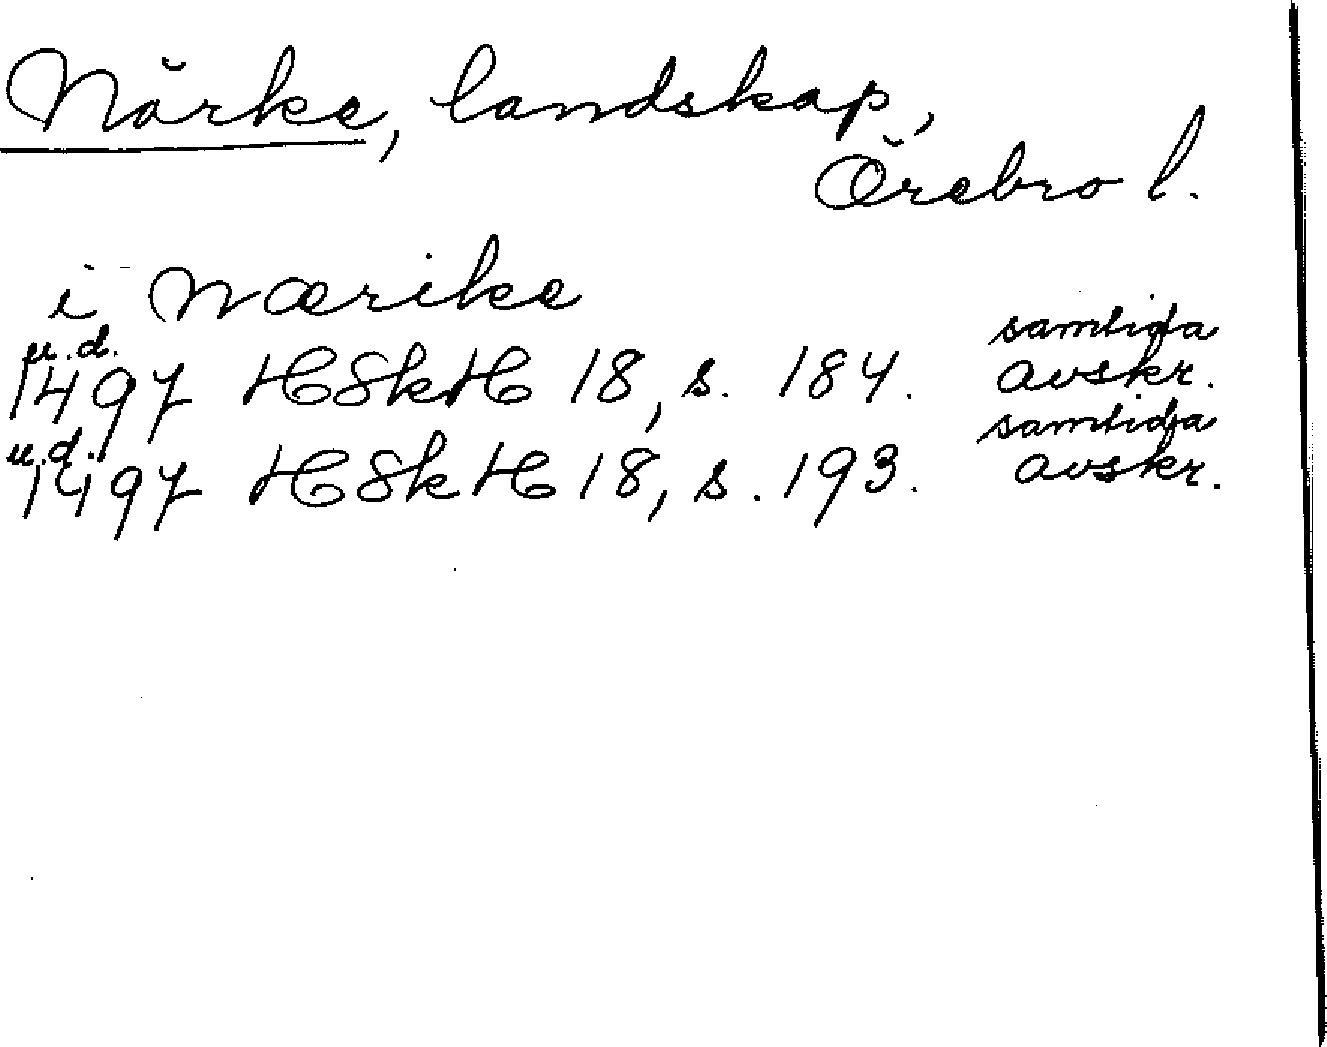 Närke, landskap,
Örebro l.
i Nærike
u.d.
1497 HSkH 18, s. 184. samtida avskr.
u.d.
1497 HSkH 18, s. 193. samtida avskr.